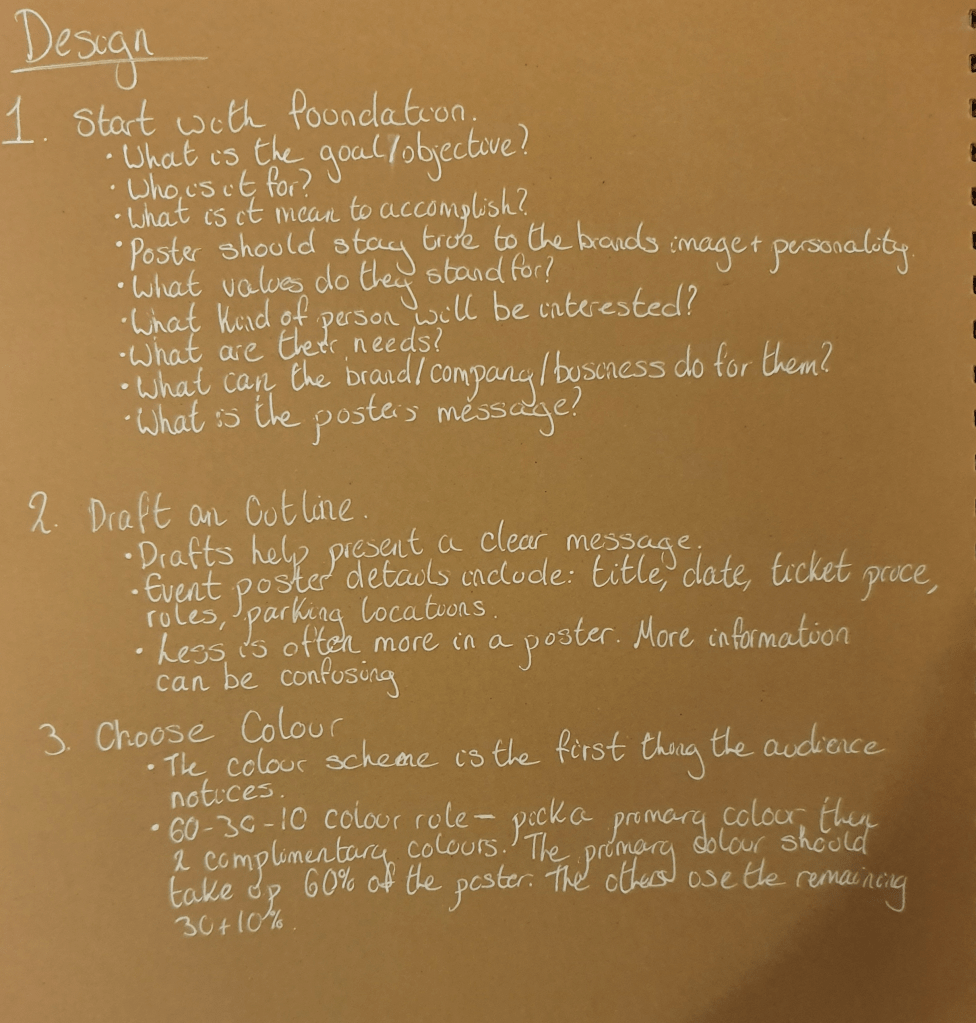 Design
1. Start with foundation.
• What is the goal/objective?
• Who is it for?
• What is it mean to accomplish?
• Poster should stay true to the brands image + personality.
• What values do they stand for?
• What kind of person will be interested?
• What are their needs?
• What can the brand/company/business do for them?
• What is the posters message?
2. Draft an Outline.
• Drafts help present a clear message.
• Event poster details include: title, date, ticket price,
rules, parking locations.
• Less is often more in a poster. More information
can be confusing
3. Choose Colour
• The colour scheme is the first thing the audience
notices.
• 60-30-10 colour rule - pick a primary colour then
2 complimentary colours. The primary colour should
take up 60% of the poster. The others use the remaining
30+10%.